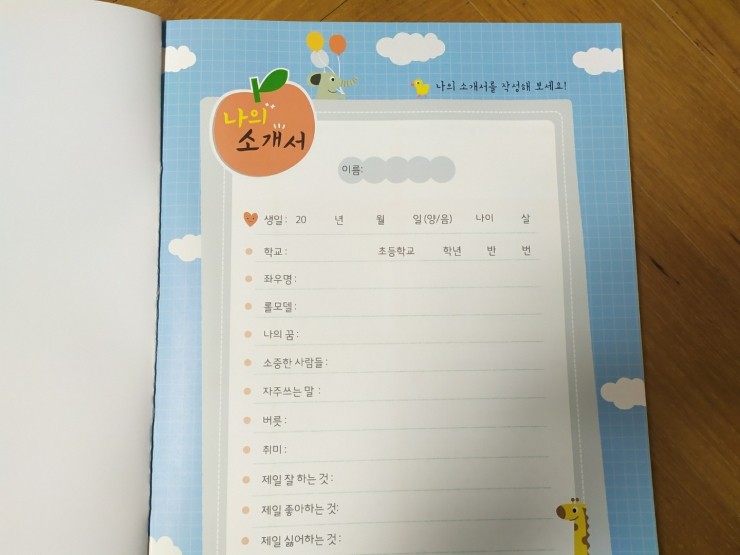 나의 소개서를 작성해 보세요!
나의
소개서
이름:
생일: 20 년 월 일(양/음) 나이 살
학교: 초등학교 학년 반 번
좌우명:
롤모델:
나의 꿈:
소중한 사람들:
자주쓰는 말 :
버릇:
취미:
제일 잘 하는 것:
제일 좋아하는 것:
제일 싫어하는 것: